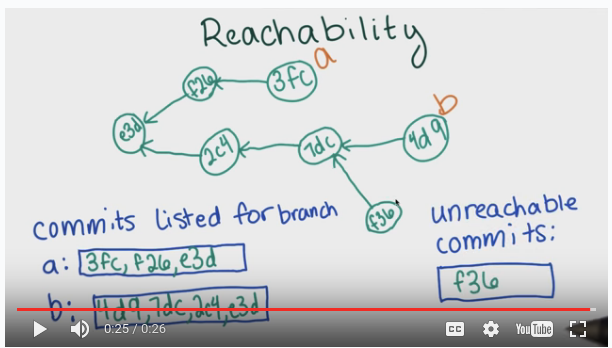 Reachability
a
f26
3fc
b
e3d
2c4
7dc
4d9
f36
commits listed for branch
a: 3fc, f26, e3d
b: 4d9, 7dc, 2c4, e3d
unreachable
commits:
f36
0:25 / 0:26
CC
YouTube